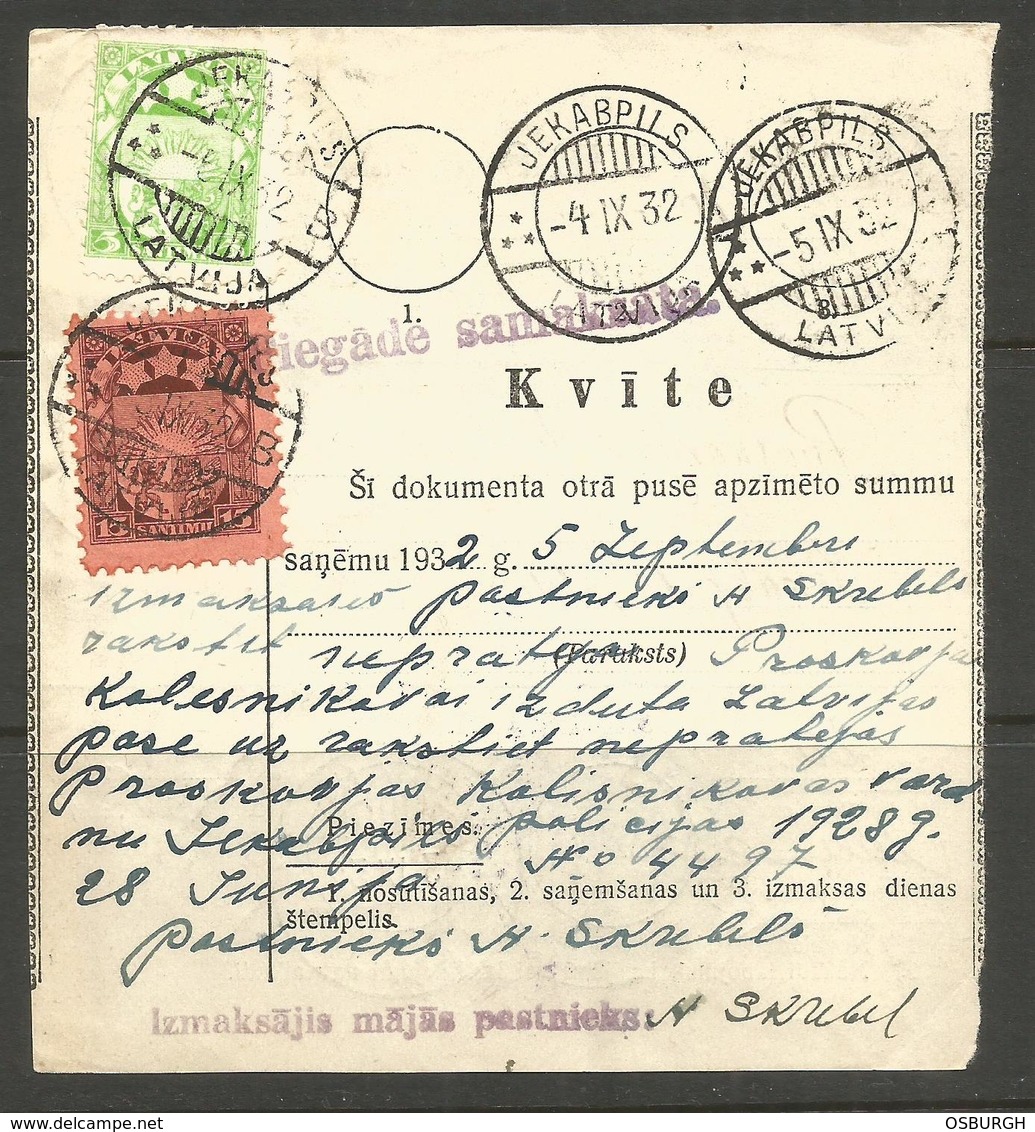 LATVIJA
5
JEKABPILS
-4 IX 32
LATVIJA
B
JEKABPILS
-4 IX 32
JEKABPILS
-5 IX 32
B
LATVI
1.
iegāde samaksāta.
LATVIJA
15 SANTIMU 15
B
Kvīte
Šī dokumenta otrā pusē apzīmēto summu
saņēmu 1932 g. 5 Septemberi
izmaksajis pastnieks A Skrebels
rakstit nepratejai Proskovjai
(Paraksts)
Kolesnikovai izduta Latvijas
pase uz rakstiet nepratejas
Proskovjas Kolisnikovas vard
nu Jekabpils policijas 1928 g.
Piezīmes.
28 Junija No 4497
1. nosūtīšanas, 2. saņemšanas un 3. izmaksas dienas
štempelis.
Pastnieks A. Skrebels
Izmaksājis mājās pastnieks: A Skrebel
OSBURGH